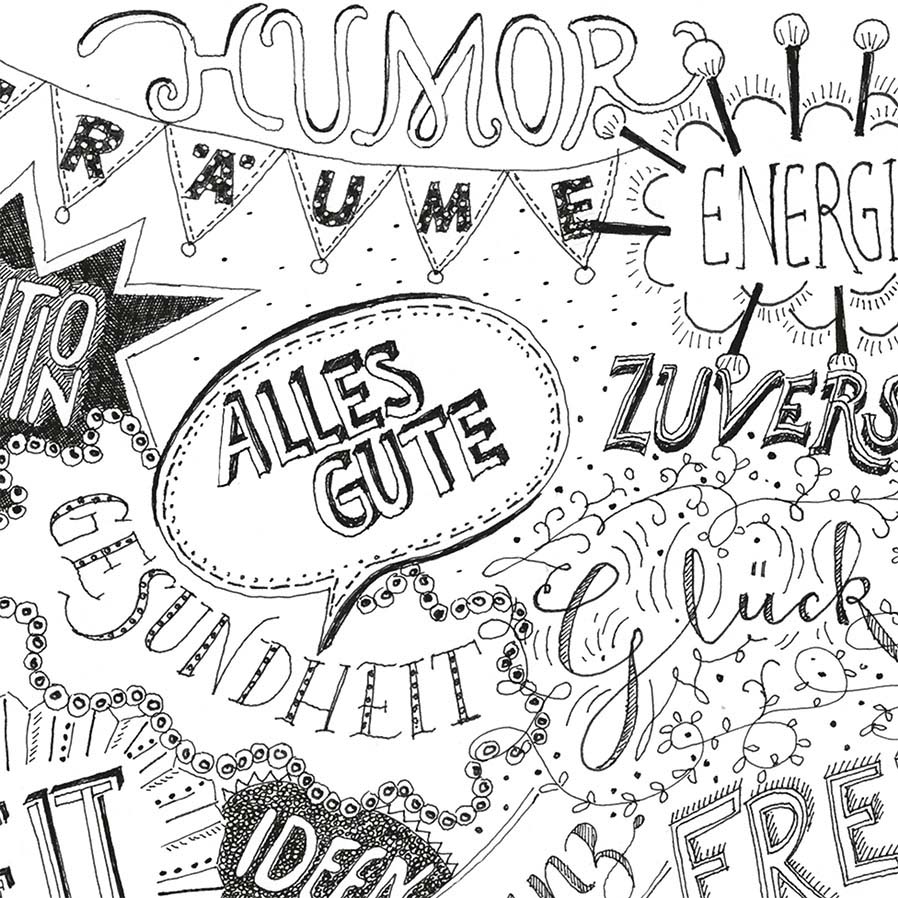 HUMOR
RÄUME
ENERGI
ALLES
GUTE
ZUVERS
GESUNDHEIT
Glück
EIT
IDEEN
FRE